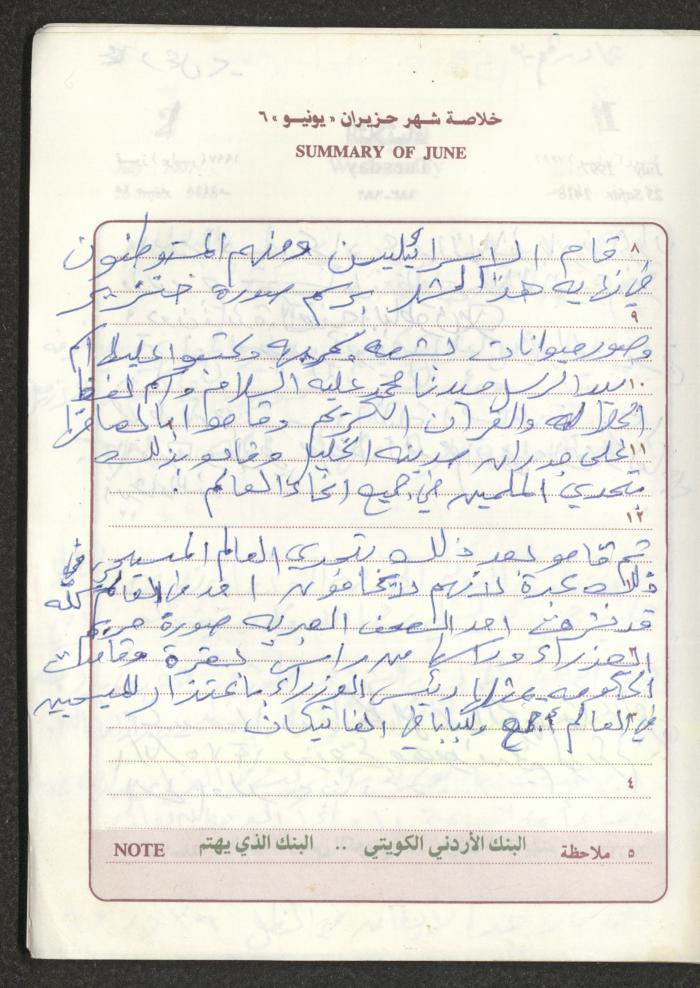 خلاصة شهر حزيران «يونيو» ٦
SUMMARY OF JUNE
٨ قام الاسرائيليين ومنهم المستوطنون
في نهايه هذا الشهر برسم صورة خنزير
٩
وصور حيوانات بشعه وكتبوا عليها اسم
١٠ سيد الرسل سيدنا محمد عليه السلام واسم لفظ
الجلاله والقرآن الكريم وقاموا بالصاقها
١١ على جدران مدينه الخليل وقامو بذلك
بتحدي المسلمين في جميع انحاء العالم .
١٢
ثم قامو بعد ذلك بتحدي العالم المسيحي
ذلك لانهم لا يخافون احد من العالم كله
قد نشرت احد الصحف العبريه صورة مريم
العذراء وراسها من راس بقرة وقامت
الحكومه ممثلها رئيس الوزراء باعتذار للمسيحيين
في العالم اجمع وللبابا في الفاتيكان
٤
٥ ملاحظة البنك الأردني الكويتي .. البنك الذي يهتم NOTE